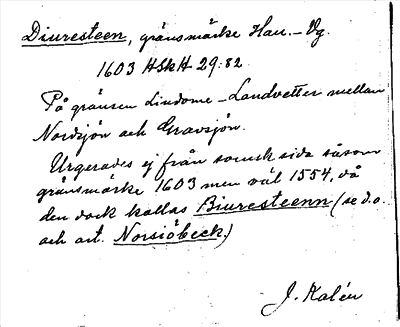 Diuresteen, gränsmärke Hau.-Vg.
1603 HSkH 29:82.
På gränsen Lindome-Landvetter mellan
Nordsjön och Gravsjön.
Urgerades ej från svensk sida såsom
gränsmärke 1603 men väl 1554, då
den dock kallas Biuresteenn (se d.o.
och art. Norsiöbeck.)
J. Kalén